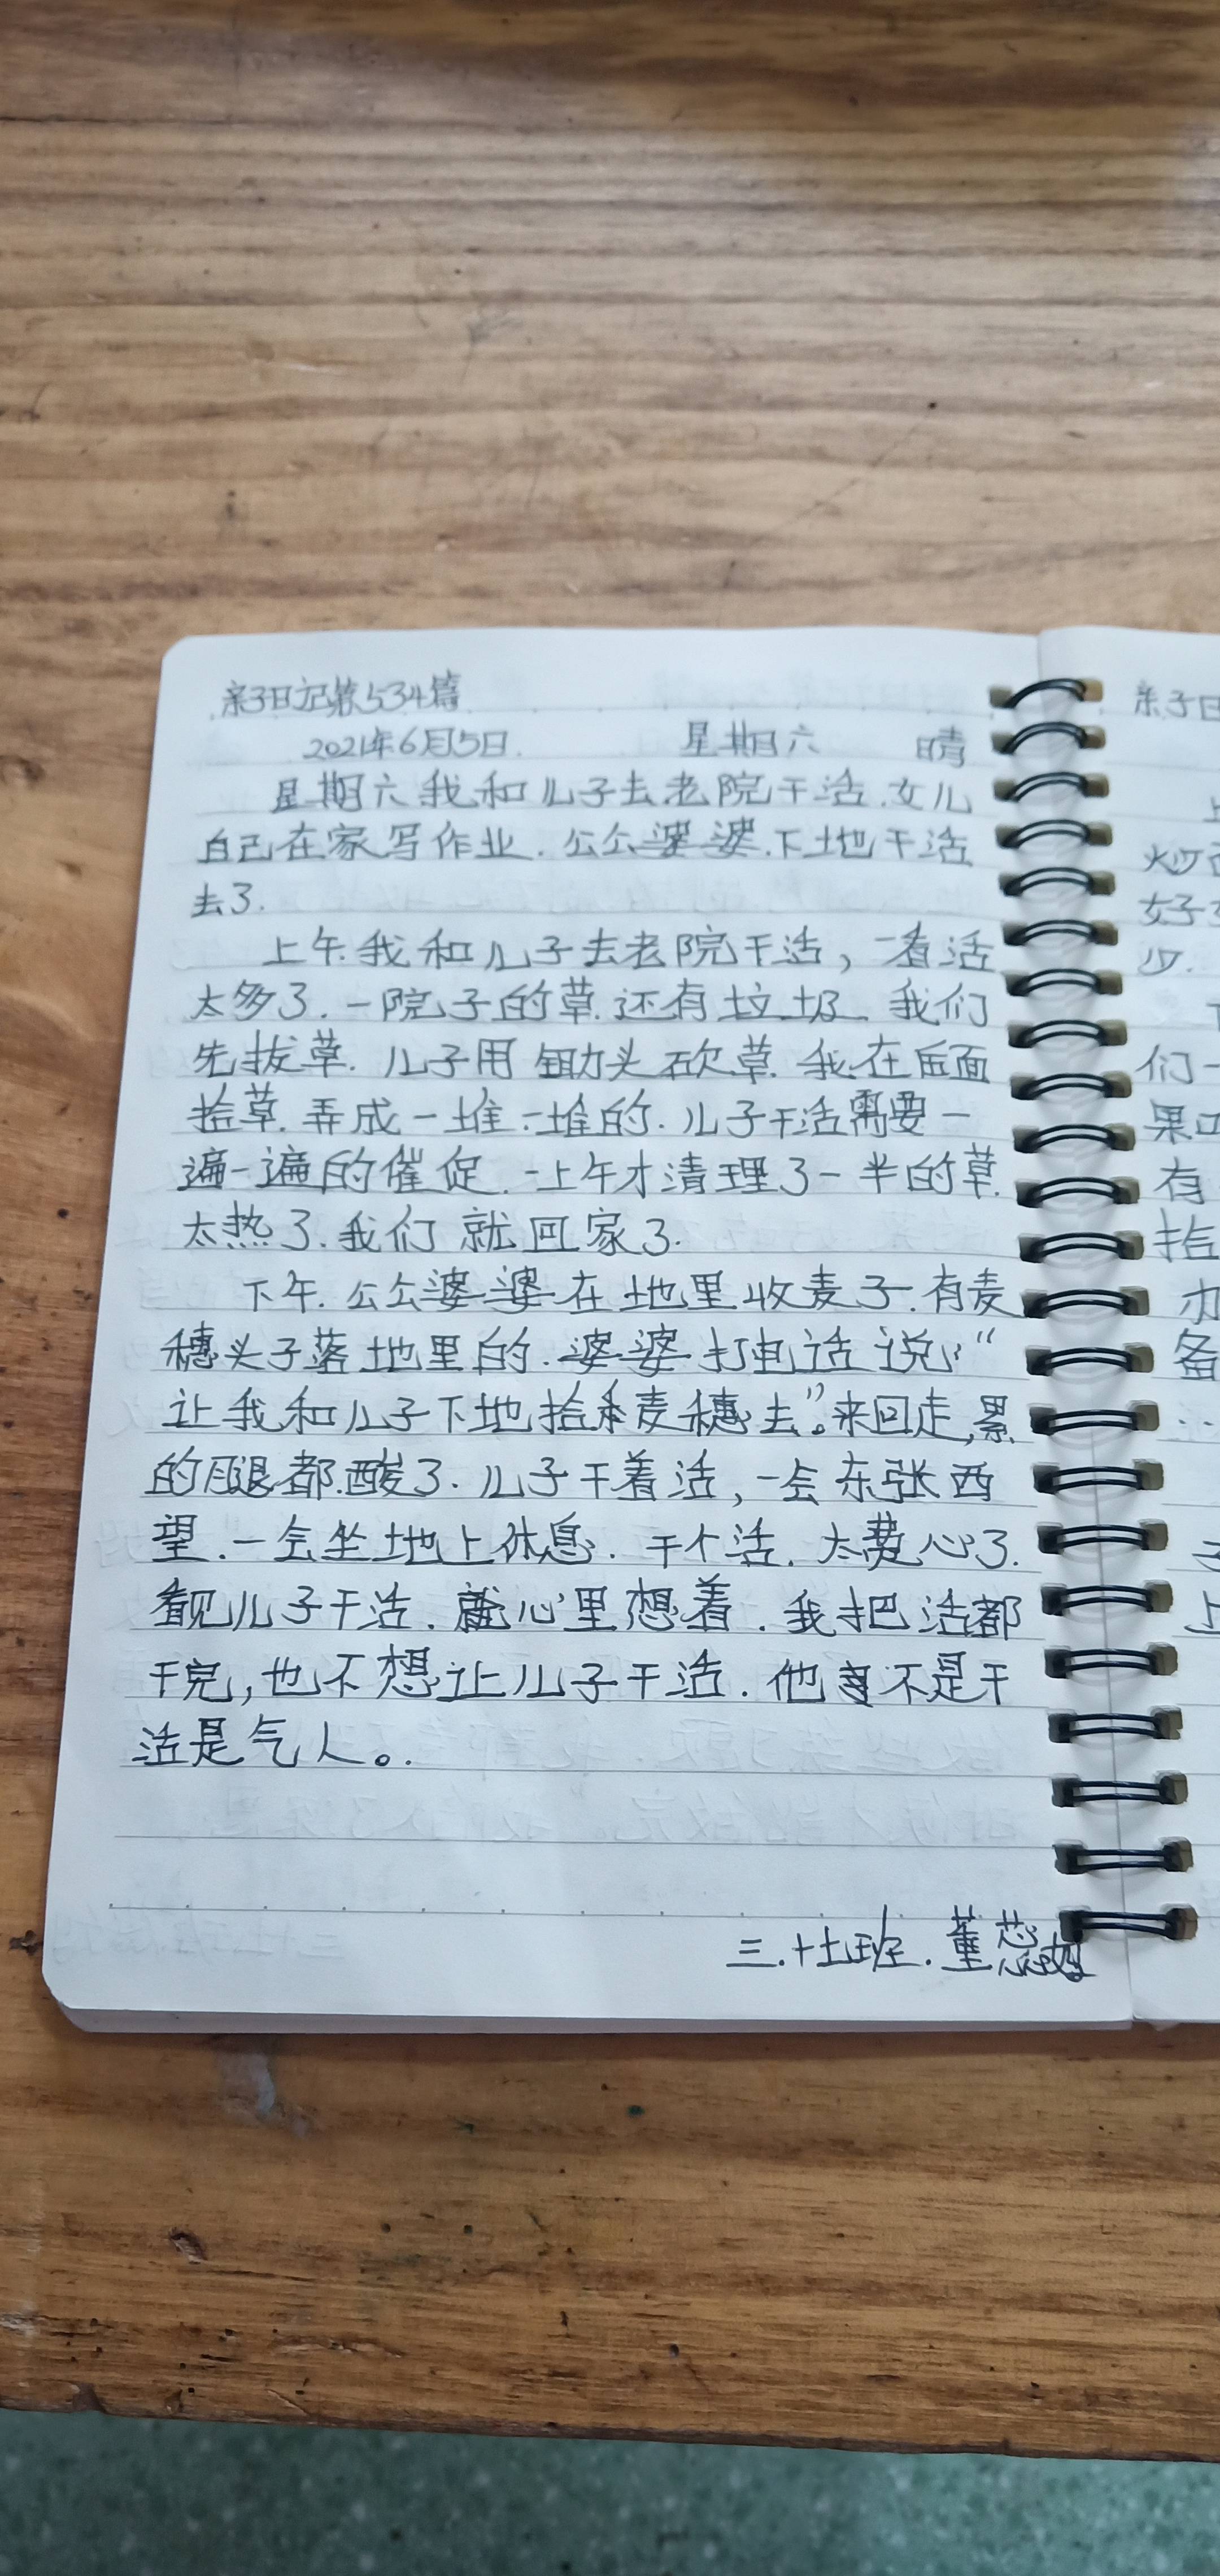 亲子日记第534篇
2021年6月5日. 星期六 晴
星期六我和儿子去老院干活.女儿
自己在家写作业.公公婆婆.下地干活
去了.
上午.我和儿子去老院干活,一看活
太多了.一院子的草.还有垃圾.我们
先拔草.儿子用锄头砍草.我在后面
拾草.弄成一堆一堆的.儿子干活需要一
遍一遍的催促.一上午才清理了一半的草.
太热了.我们就回家了.
下午.公公婆婆在地里收麦子.有麦
穗头子落地里的.婆婆打电话说:“
让我和儿子下地拾麦穗去”。来回走,累
的腿都.酸了.儿子干着活,一会东张西
望.一会坐地上休息.干个活.太费心了.
看见儿子干活.就心里想着.我把活都
干完,也不想让儿子干活.他真不是干
活是气人。.
三.十七班.董芯
亲子日
们一
果四
有
拾
办
备